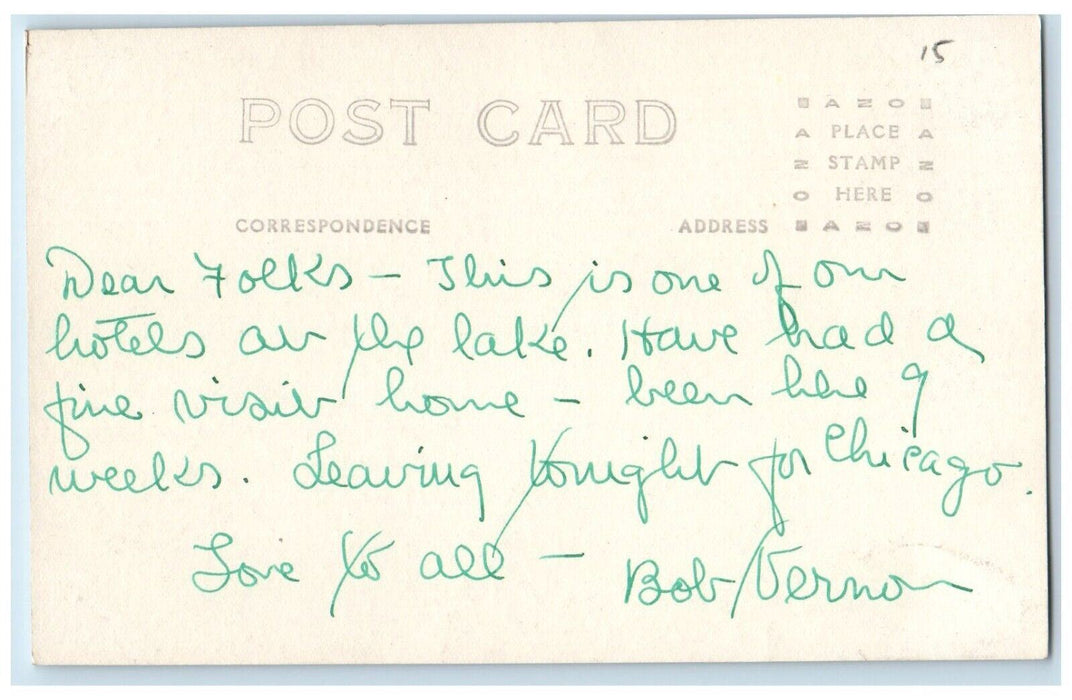 15
POST CARD
AZO
A PLACE A
Z STAMP Z
O HERE O
AZO
CORRESPONDENCE ADDRESS
Dear Folks — This is one of our
hotels on the lake. Have had a
fine visit home — been here 9
weeks. Leaving tonight for Chicago.
Love to all — Bob Vernon